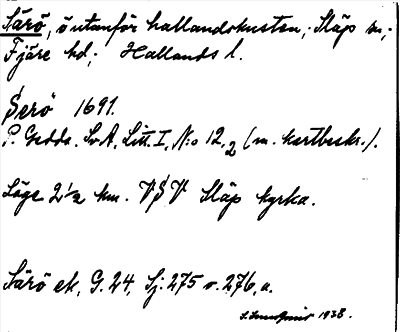 Särö, ö utanför hallandskusten; Släp sn;
Fjäre hd; Hallands l.
Serö 1691.
P. Gedda. Sv. A. Litt. I, N:o 12,2 (m. kartbeskr.).
Läge 2 1/2 km. VSV Släp kyrka.
Särö ek, G. 24, Sj: 275 o. 276, a.
1938.